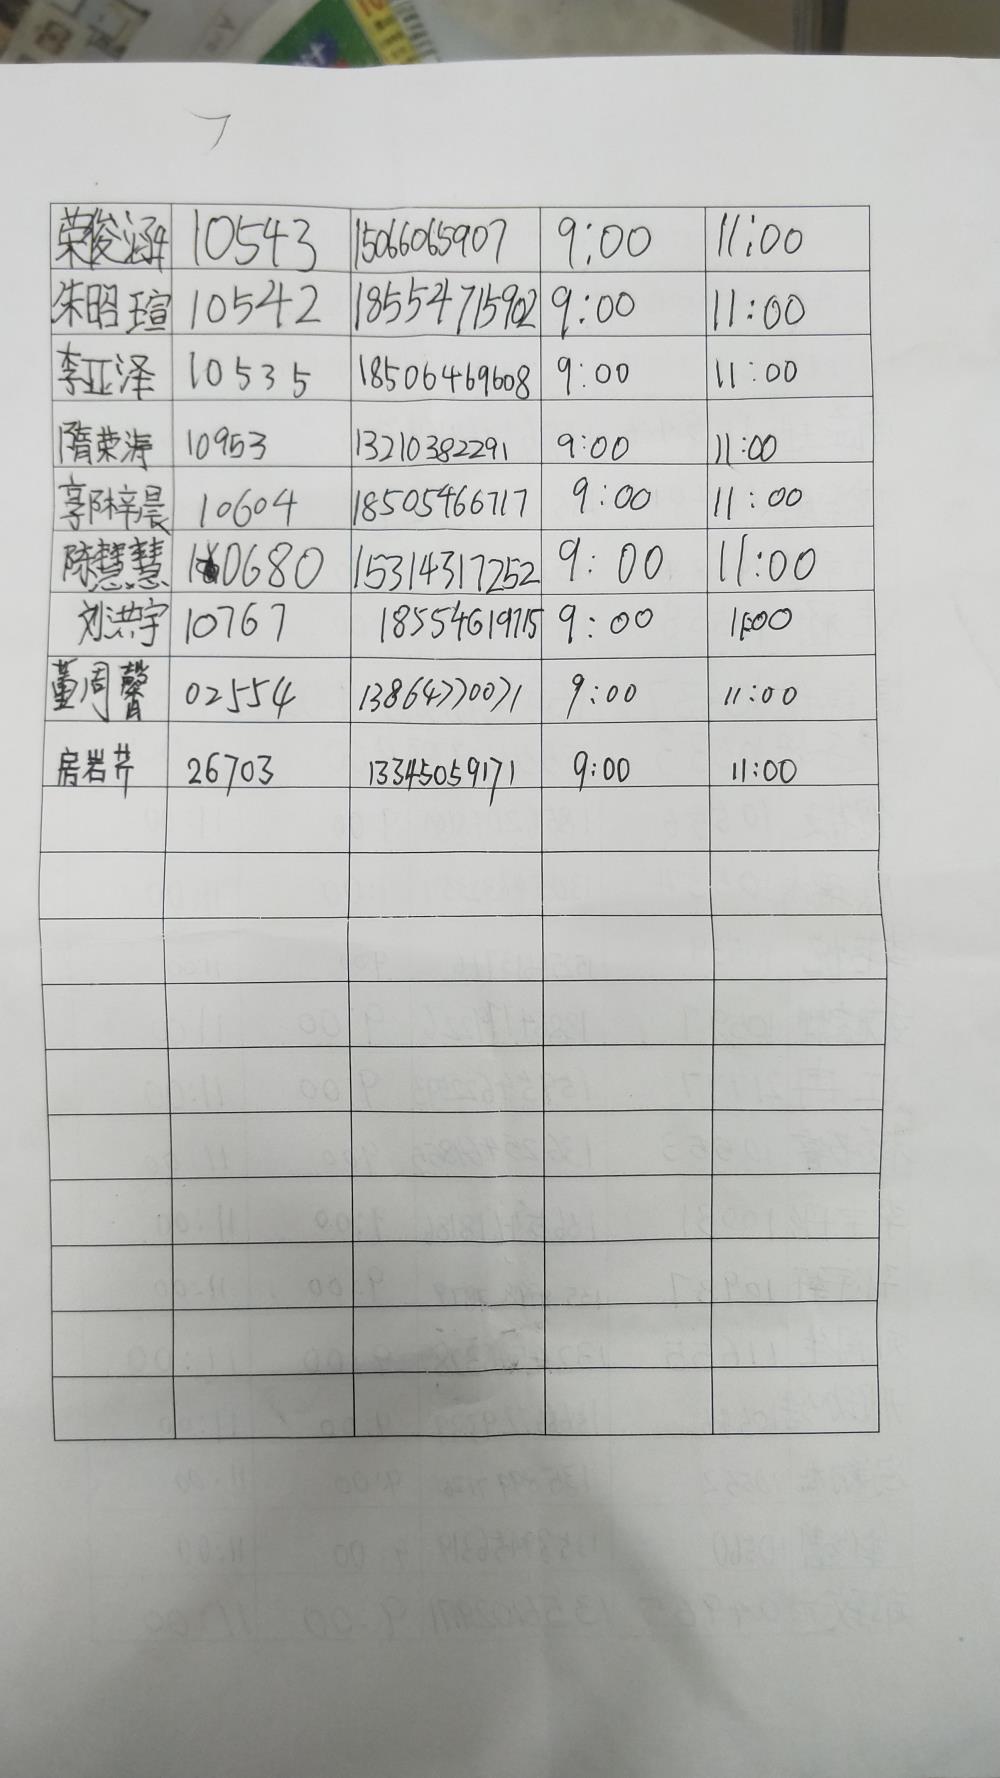 荣俊涵 10543 15066065907 9:00 11:00
朱昭瑄 10542 18554715902 9:00 11:00
李亚泽 10535 18506469608 9:00 11:00
隋荣海 10953 13210382291 9:00 11:00
郭梓晨 10604 18505466717 9:00 11:00
陈慧慧 10680 15314317252 9:00 11:00
刘洪宇 10767 18554619715 9:00 11:00
董周馨 02554 13864770071 9:00 11:00
房岩芹 26703 13345059171 9:00 11:00